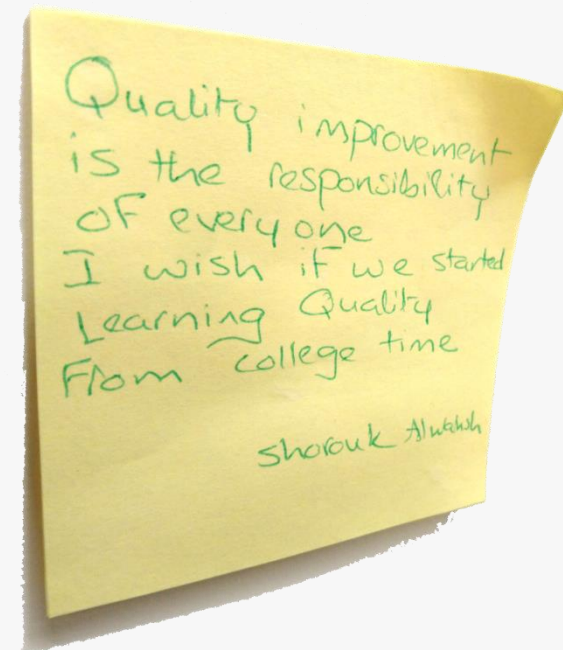 Quality improvement
is the responsibility
of everyone
I wish if we started
Learning Quality
From college time
Shorouk Alwahsh